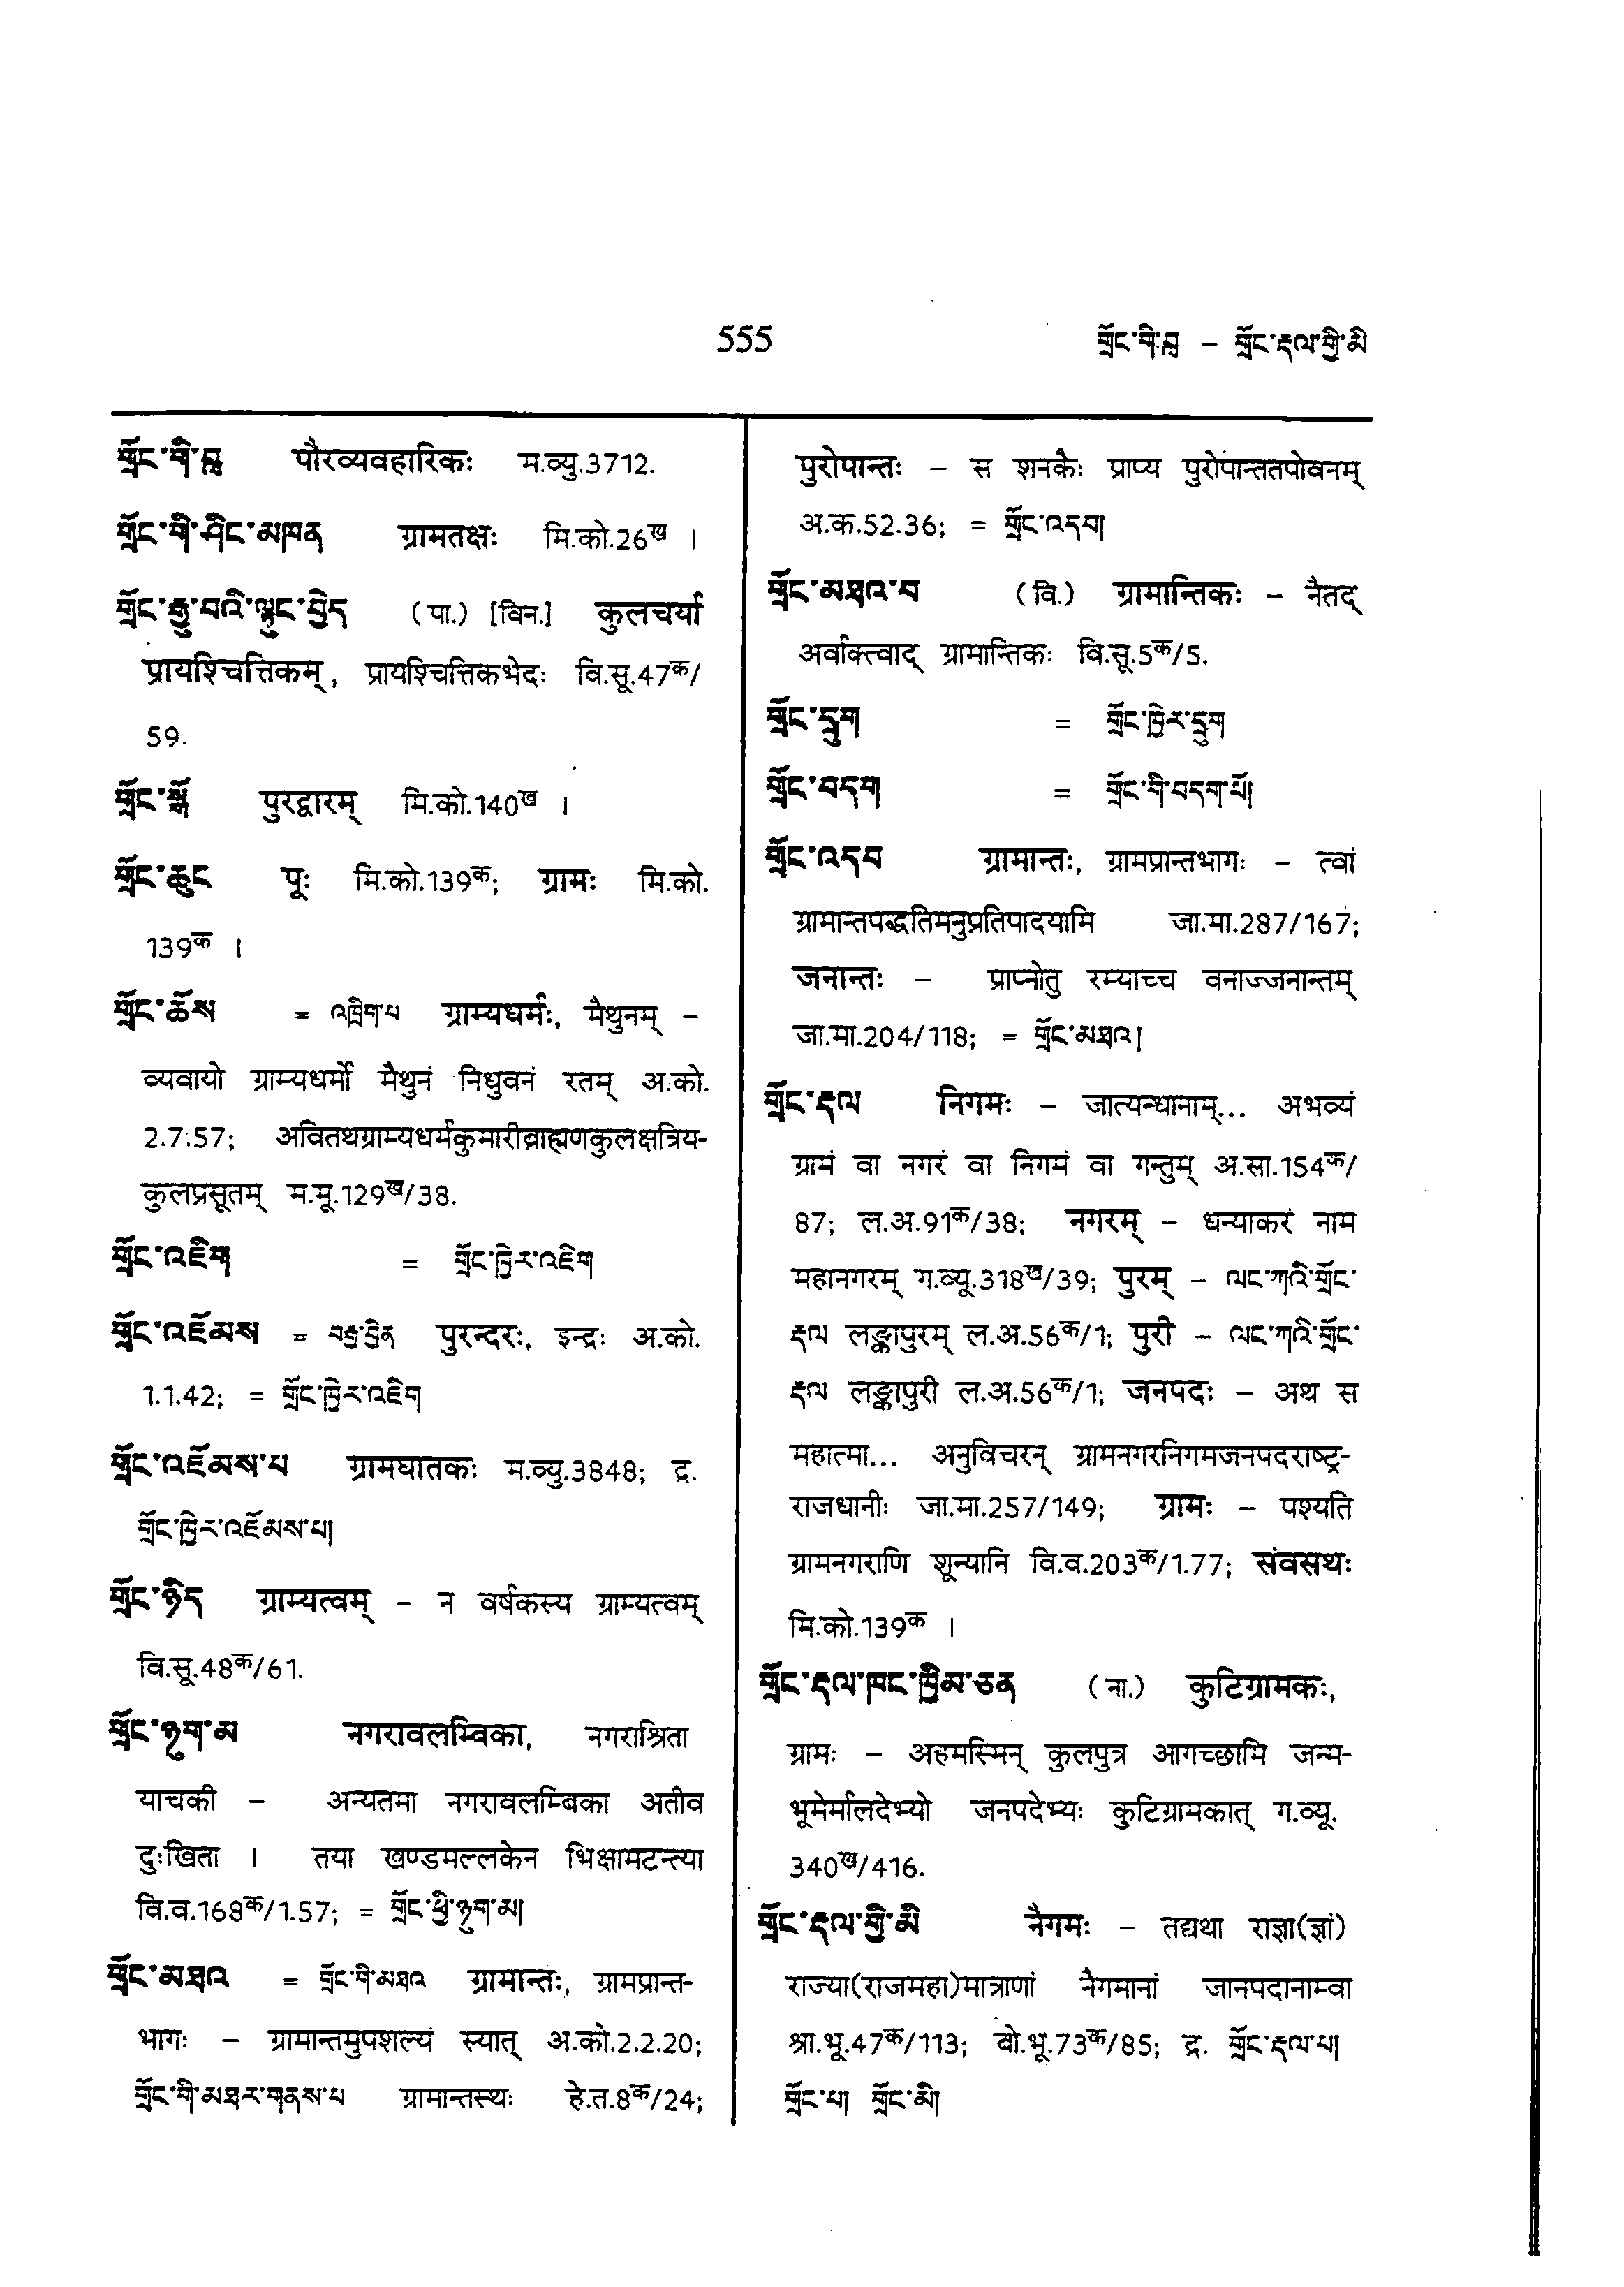 555
གྲོང་གི་བླ – གྲོང་རྡལ་གྱི་མི
གྲོང་གི་བླ पौरव्यवहारिकः म.व्यु.3712.
གྲོང་གི་ཤིང་མཁན ग्रामतक्षः मि.को.26ख ।
གྲོང་རྒྱུ་བའི་ལྟུང་བྱེད (पा.) [विन.] कुलचर्या
प्रायश्चित्तिकम्, प्रायश्चित्तिकभेदः वि.सू.47क/
59.
གྲོང་སྒོ पुरद्वारम् मि.को.140ख ।
གྲོང་ཆུང पूः मि.को.139क; ग्रामः मि.को.
139क ।
གྲོང་ཆོས = འཁྲིག་པ ग्राम्यधर्मः, मैथुनम् –
व्यवायो ग्राम्यधर्मो मैथुनं निधुवनं रतम् अ.को.
2.7.57; अवितथग्राम्यधर्मकुमारीब्राह्मणकुलक्षत्रिय-
कुलप्रसूतम् म.मू.129ख/38.
གྲོང་འཇིག = གྲོང་ཁྱེར་འཇིག
གྲོང་འཇོམས = བརྒྱ་བྱིན पुरन्दरः, इन्द्रः अ.को.
1.1.42; = གྲོང་ཁྱེར་འཇིག
གྲོང་འཇོམས་པ ग्रामघातकः म.व्यु.3848; द्र.
གྲོང་ཁྱེར་འཇོམས་པ།
གྲོང་ཉིད ग्राम्यत्वम् – न वर्षकस्य ग्राम्यत्वम्
वि.सू.48क/61.
གྲོང་ཉུག་མ नगरावलम्बिका, नगराश्रिता
याचकी – अन्यतमा नगरावलम्बिका अतीव
दुःखिता । तया खण्डमल्लकेन भिक्षामटन्त्या
वि.व.168क/1.57; = གྲོང་ཕྱི་ཉུག་མ།
གྲོང་མཐའ = གྲོང་གི་མཐའ ग्रामान्तः, ग्रामप्रान्त-
भागः – ग्रामान्तमुपशल्यं स्यात् अ.को.2.2.20;
གྲོང་གི་མཐར་གནས་པ ग्रामान्तस्थः हे.त.8क/24;
पुरोपान्तः – स शनकैः प्राप्य पुरोपान्ततपोवनम्
अ.क.52.36; = གྲོང་འདབ།
གྲོང་མཐའ་བ (वि.) ग्रामान्तिकः – नैतद्
अर्वाक्त्वाद् ग्रामान्तिकः वि.सू.5क/5.
གྲོང་དྲུག = གྲོང་ཁྱེར་དྲུག
གྲོང་བདག = གྲོང་གི་བདག་པོ།
གྲོང་འདབ ग्रामान्तः, ग्रामप्रान्तभागः – त्वां
ग्रामान्तपद्धतिमनुप्रतिपादयामि जा.मा.287/167;
जनान्तः – प्राप्नोतु रम्याच्च वनाज्जनान्तम्
जा.मा.204/118; = གྲོང་མཐའ།
གྲོང་རྡལ निगमः – जात्यन्धानाम्... अभव्यं
ग्रामं वा नगरं वा निगमं वा गन्तुम् अ.सा.154क/
87; ल.अ.91क/38; नगरम् – धन्याकरं नाम
महानगरम् ग.व्यू.318ख/39; पुरम् – ལང་ཀའི་གྲོང་
རྡལ लङ्कापुरम् ल.अ.56क/1; पुरी – ལང་ཀའི་གྲོང་
རྡལ लङ्कापुरी ल.अ.56क/1; जनपदः – अथ स
महात्मा... अनुविचरन् ग्रामनगरनिगमजनपदराष्ट्र-
राजधानीः जा.मा.257/149; ग्रामः – पश्यति
ग्रामनगराणि शून्यानि वि.व.203क/1.77; संवसथः
मि.को.139क ।
གྲོང་རྡལ་ཁང་ཁྱིམ་ཅན (ना.) कुटिग्रामकः,
ग्रामः – अहमस्मिन् कुलपुत्र आगच्छामि जन्म-
भूमेर्मालदेभ्यो जनपदेभ्यः कुटिग्रामकात् ग.व्यू.
340ख/416.
གྲོང་རྡལ་གྱི་མི नैगमः – तद्यथा राज्ञा(ज्ञां)
राज्या(राजमहा)मात्राणां नैगमानां जानपदानाम्वा
श्रा.भू.47क/113; बो.भू.73क/85; द्र. གྲོང་རྡལ་པ།
གྲོང་པ། གྲོང་མི།